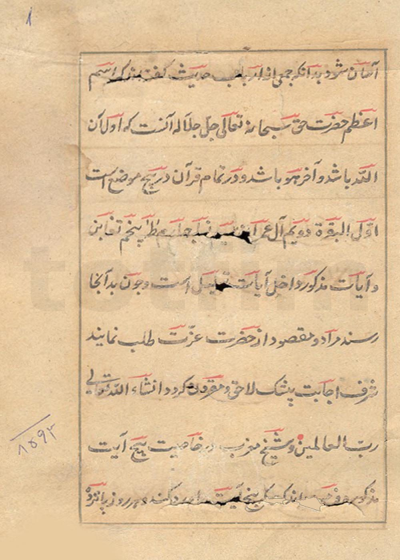 ۱
آسان شود بدانکه جمعی از ارباب حدیث گفته‌اند که اسم
اعظم حضرت حق سبحانه تعالی جل جلاله آنست که اول آن
الله باشد و آخر هو باشد و در تمام قرآن در پنج موضع است
اول البقره دویم آل عمران پنجم تغابن
و آیات مذکور داخل آیات تهلیل است و چون بدانجا
رسند مراد و مقصود از حضرت عزت طلب نمایند
شرف اجابت بیشک لاحق و مقرون گردد انشاء الله تعالی
رب العالمین و شیخ مغربی در خاصیت پنج آیت
مذکور که پنج آیت کند و هر روز پانزده
۱۵۹۲